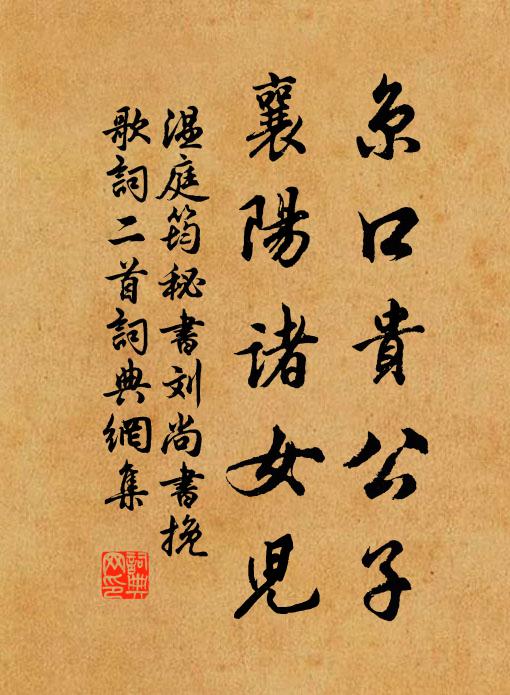 京口貴公子
襄陽諸女兒
溫庭筠秘書刘尚書挽
歌詞二首詞典網集
詞典
网印